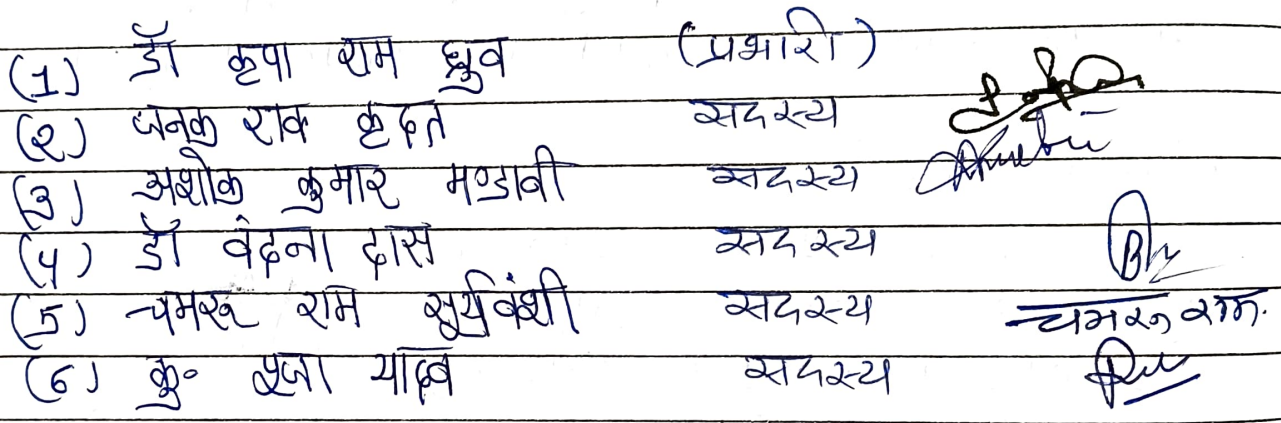 (1) डॉ कृपा राम ध्रुव (प्रभारी)
(2) जनक राव कृदत सदस्य
(3) अशोक कुमार मण्डावी सदस्य
(4) डॉ वेदना दास सदस्य
(5) चमरू राम सूर्यवंशी सदस्य चमरू राम.
(6) कु॰ पूजा यादव सदस्य